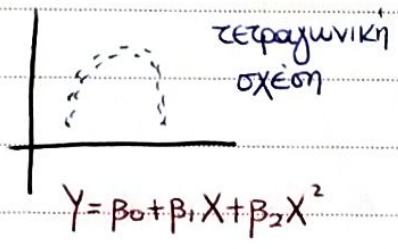 τετραγωνική
σχέση
Y = β₀ + β₁X + β₂X²